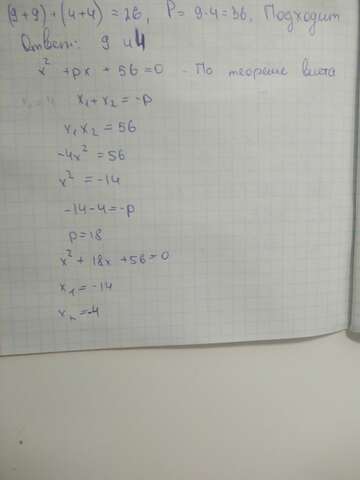 (9+9)+(4+4) = 26, P = 9·4=36, Подходит
Ответ: 9 и 4
x² + px + 56=0 - По теореме виета
x₁+x₂ = -p
x₁ x₂ = 56
-4x² = 56
x² = -14
-14-4=-p
p=18
x² + 18x +56=0
x₁ = -14
x₂ = -4